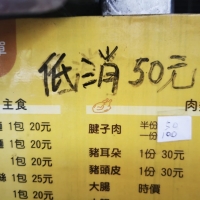 單
低消 50元
主食
1包 20元
1包 20元
1包 20元
1包 20元
肉
腱子肉 半份 50
一份 100
豬耳朵 1份 30元
豬頭皮 1份 30元
大腸 時價